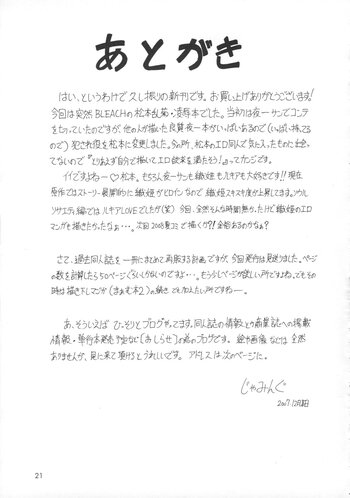 あとがき
はい、というわけで久し振りの新刊です。お買い上げありがとうございます!
今回は突然BLEACHの松本乱菊・凌辱本でした。当初は夜一サンでコンテ
をきっていたのですが、他の人が描いた良質夜一本がいっぱいあるので(いっぱい持ってる
ので)犯され役を松本に変更しました。その所、松本のエロ同人で気に入ったものに出会
ってないので「とりあえず自分で描いてエロ欲求を満たそう!」ってカンジです。
イイですよねー♡松本。もちろん夜一サンも織姫もルキアも大好きです!!現在
原作ではストーリー展開的に織姫がヒロインなので織姫スキスキ度が上昇してます。
ソウルソサエティ編ではルキアLOVEでしたが(笑)今回、全然そんな時間無かったけど織姫のエロ
マンガも描きたかったなぁ…。次回2008夏コミで描くか!?余裕あるのかなぁ?
さて、過去同人誌を一冊にまとめて再販する計画ですが、今回発行は見送りました。ページ
の数を計算したら50ページくらいしかないのですよ…。もう少しページが欲しい所ですよね。でもその
時は描き下しマンガ
の続きでも加えたい所ですねー。
あ、そういえばひっそりとブログやってます。同人誌の情報とか商業誌への掲載
情報・単行本発売予定など[おしらせ]の為のブログです。絵や画像などは全然
ありませんが、見に来て頂けるとうれしいです。アドレスは次のページに。
じゃみんぐ
2007.12月
21